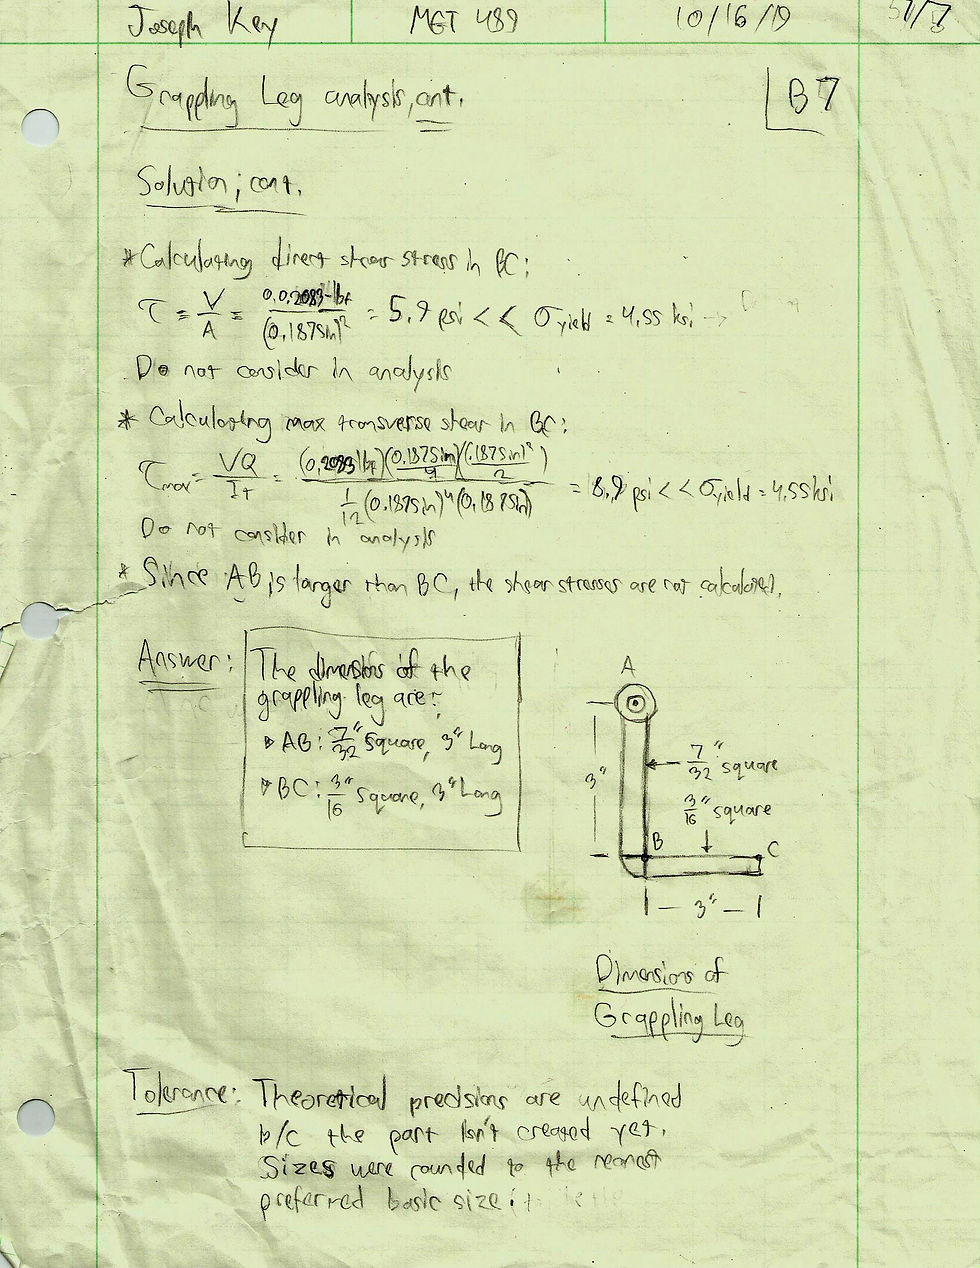 Joseph Key MET 489 10/16/19
Grappling Leg analysis, cont.
B7
Solution; cont.
* Calculating direct shear stress in BC:
τ = V/A = 0.2083 lbf/(0.1875in)² = 5.9 psi << σyield = 4.55 ksi →
Do not consider in analysis
* Calculating max transverse shear in BC:
τmax = VQ/It = (0.2083 lbf)(0.1875in/4)((.1875in)²/2) / 1/12(0.1875in)⁴(0.1875in) = 8.9 psi << σyield = 4.55 ksi
Do not consider in analysis
* Since AB is larger than BC, the shear stresses are not calculated.
Answer:
The dimensions of the
grappling leg are:
▸ AB: 7/32" square, 3" Long
▸ BC: 3/16" square, 3" Long
A
3"
7/32" square
3/16" square
B
C
3"
Dimensions of
Grappling Leg
Tolerance: Theoretical precisions are undefined
b/c the part isn't created yet.
Sizes were rounded to the nearest
preferred basic size